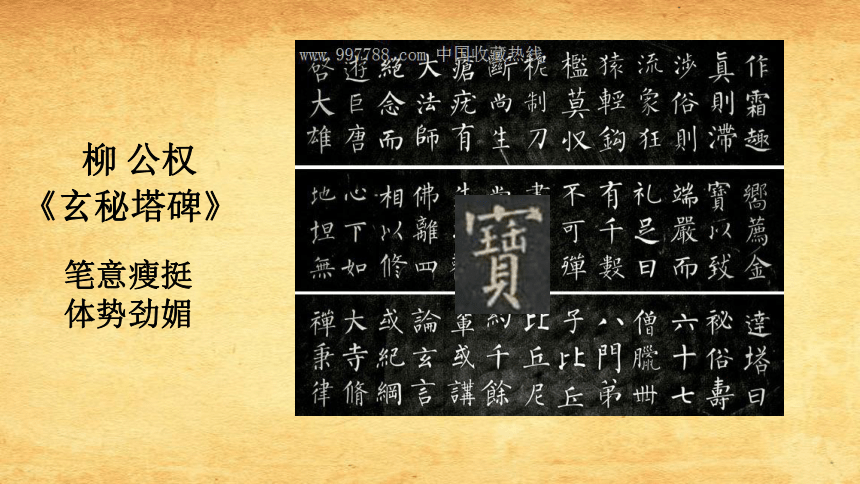 www.997788.com 中国收藏热线
柳 公权
《玄秘塔碑》
笔意瘦挺
体势劲媚
作霜趣
真則滯
涉俗則
流象狂
猿輕鈎
檻莫収
柅制刀
斷尚生
瘡疣有
大法師
絕念而
遊巨唐
啓大雄
嚮薦金
寶以致
端嚴而
礼足日
有千數
不可殫
佛離四
相以修
心下如
地坦無
寶
達塔曰
祕俗壽
六十七
僧臘卌
八門弟
子比丘
比丘尼
約千餘
軰或講
論玄言
或紀綱
大寺脩
禪秉律